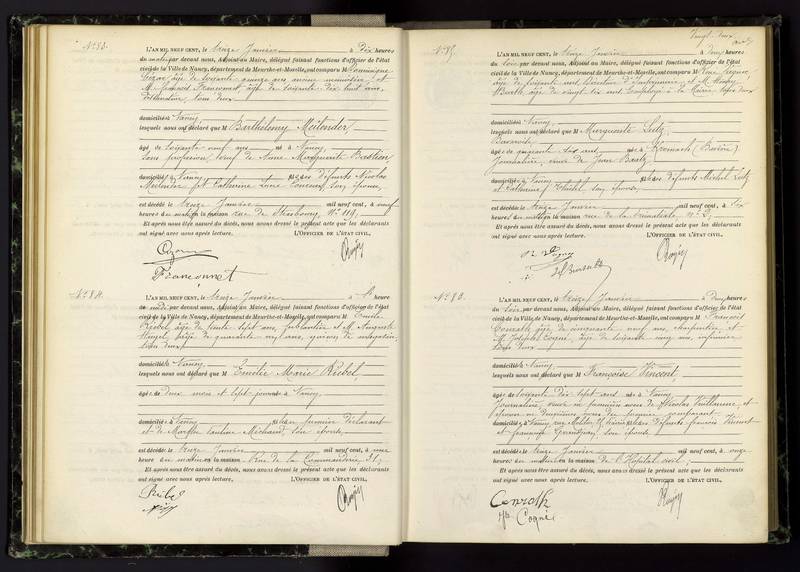 N° 83.
L'AN MIL NEUF CENT, le treize Janvier à dix heures
du matin par devant nous, Adjoint au Maire, délégué faisant fonctions d'officier de l'état
civil de la Ville de Nancy, département de Meurthe-et-Moselle, ont comparu M Dominique
âgé de soixante quinze ans, ancien et
M. François Franconnet, âgé de soixante dix huit ans,
tous deux
domiciliés à Nancy
lesquels nous ont déclaré que M Barthélemy Meilender
âgé de soixante neuf ans né à Nancy,
sans profession, veuf de Anne Marguerite Bastien
domicilié à Nancy fils des défunts Nicolas
Meilender et Catherine son épouse,
est décédé le treize Janvier mil neuf cent, à neuf
heures du matin en la maison rue de Strasbourg, N° 119,
Et après nous être assuré du décès, nous avons dressé le présent acte que les déclarants
ont signé avec nous après lecture. L'OFFICIER DE L'ÉTAT CIVIL,
Franconnet
N° 84.
L'AN MIL NEUF CENT, le treize Janvier à heure
du par devant nous, Adjoint au Maire, délégué faisant fonctions d'officier de l'état
civil de la Ville de Nancy, département de Meurthe-et-Moselle, ont comparu M Emile
Riebel, âgé de trente sept ans, ferblantier et M. Auguste
âgé de quarante neuf ans, garçon de magasin,
tous deux
domiciliés à Nancy
lesquels nous ont déclaré que M Emélie Marie Riebel,
âgée de deux mois et sept jours née à Nancy,
domiciliée à Nancy fille du premier déclarant
et de Marthe Pauline Michaud, son épouse,
est décédée le treize Janvier mil neuf cent, à une
heure du matin en la maison rue de la Commanderie 31,
Et après nous être assuré du décès, nous avons dressé le présent acte que les déclarants
ont signé avec nous après lecture. L'OFFICIER DE L'ÉTAT CIVIL,
Riebel
Vingt-deux
N° 85.
L'AN MIL NEUF CENT, le treize Janvier à deux heures
du soir par devant nous, Adjoint au Maire, délégué faisant fonctions d'officier de l'état
civil de la Ville de Nancy, département de Meurthe-et-Moselle, ont comparu M René
âgé de soixante ans, Directeur d'Imprimerie et M.
âgé de vingt six ans, Employé à la Mairie tous deux
domiciliés à Nancy,
lesquels nous ont déclaré que M Marguerite Lutz,
Bavaroise
âgée de cinquante six ans née à Kronach (Bavière)
Journalière, veuve de Jean Bartz
domiciliée à Nancy fille des défunts Michel Lutz
et Catherine son épouse,
est décédée le treize Janvier mil neuf cent, à six
heures du matin en la maison rue de la Primatiale, N° 2,
Et après nous être assuré du décès, nous avons dressé le présent acte que les déclarants
ont signé avec nous après lecture. L'OFFICIER DE L'ÉTAT CIVIL,
N° 86.
L'AN MIL NEUF CENT, le treize Janvier à deux heures
du soir par devant nous, Adjoint au Maire, délégué faisant fonctions d'officier de l'état
civil de la Ville de Nancy, département de Meurthe-et-Moselle, ont comparu M François
Conrath, âgé de cinquante neuf ans, charpentier et
M. Joseph Cogné, âgé de soixante cinq ans, infirmier
tous deux
domiciliés à Nancy
lesquels nous ont déclaré que M Françoise Vincent,
âgée de soixante dix sept ans née à Nancy
Journalière, veuve en premières noces de Nicolas Vuillaume, et
épouse en deuxièmes noces du premier comparant
domiciliée à Nancy, rue fille des défunts François Vincent
et son épouse
est décédée le treize Janvier mil neuf cent, à onze
heures du matin en la maison de l'Hôpital civil;
Et après nous être assuré du décès, nous avons dressé le présent acte que les déclarants
ont signé avec nous après lecture. L'OFFICIER DE L'ÉTAT CIVIL,
Conrath
Cogné